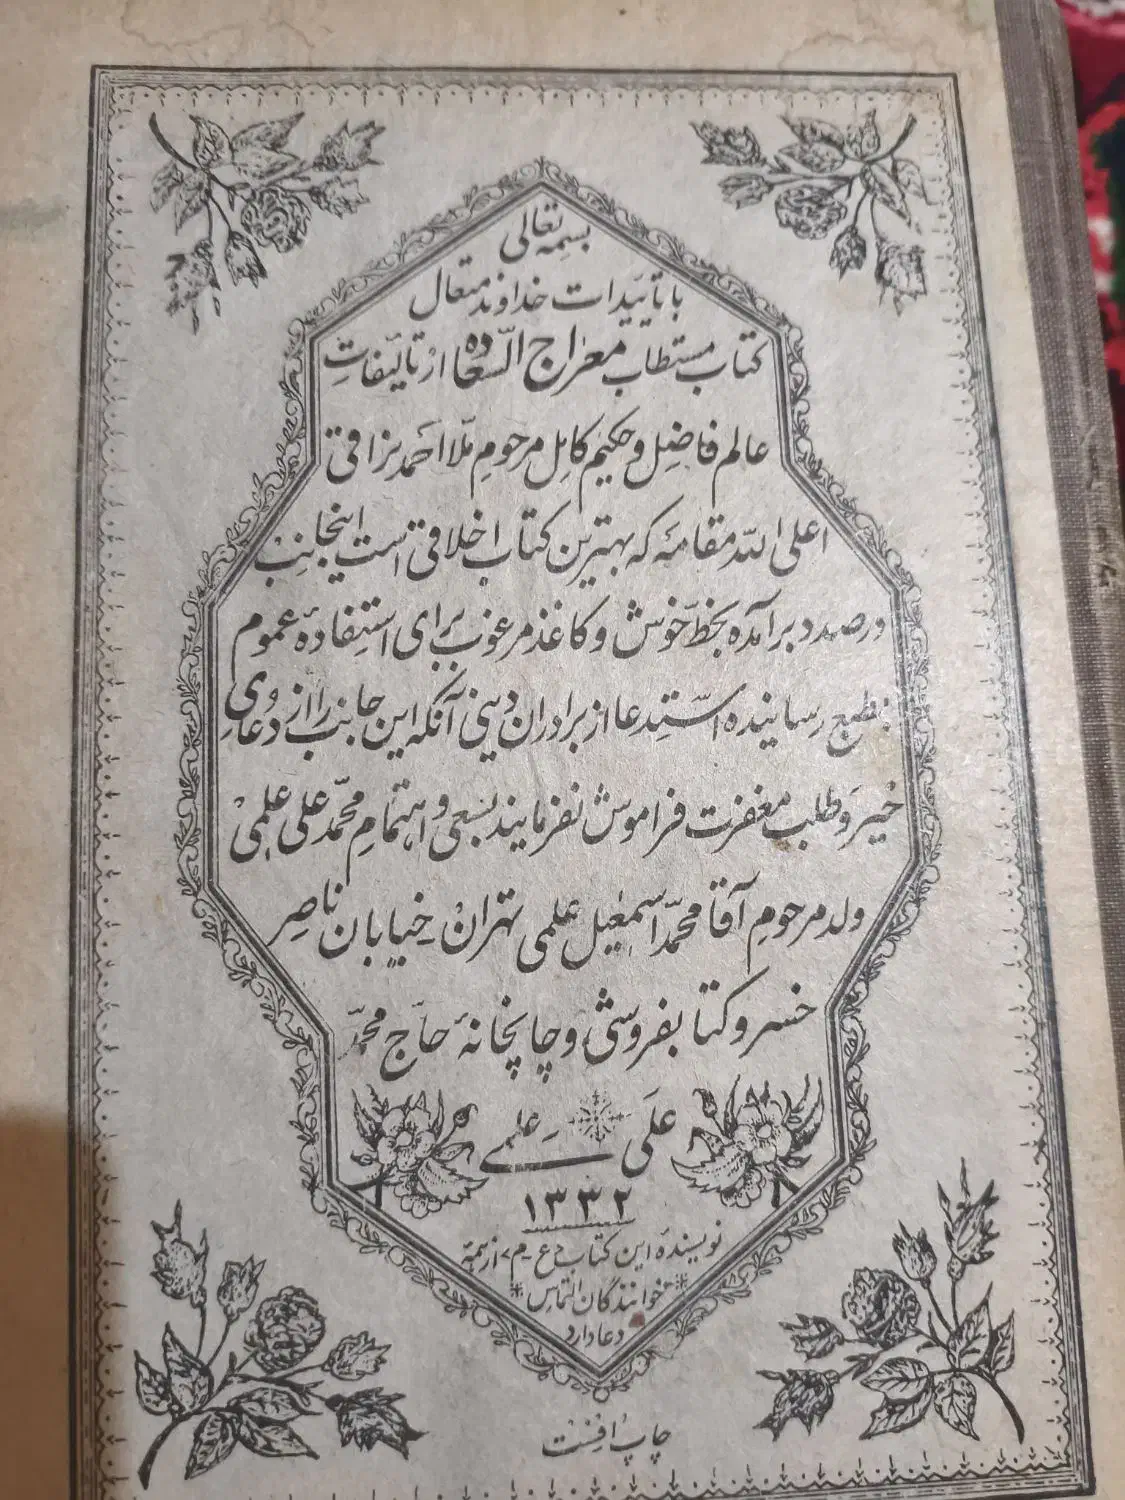 بسمه تعالی
با تأییدات خداوند متعال
کتاب مستطاب معراج السّعاده از تألیفاتِ
عالم فاضِل و حکیم کامِل مرحومِ ملّا احمد نراقی
اعلی اللّه مقامَه که بهترین کتاب اخلاقی است اینجانِب
درصدد برآمده بخطّ خوش و کاغذ مرغوب برای استفادهٔ عموم
بطبع رسانیده استِدعا از برادران دینی آنکه این جانب را از دعایِ
خیر و طلب مغفرت فراموش نفرمایند بسعی و اهتمامِ محمّد علی علمی
ولد مرحومِ آقا محمّد اسمعیل علمی تهران خیابان ناصِر
خسرو کتابفروشی و چاپخانهٔ حاج محمّد
علی علمی
۱۳۳۲
نویسنده این کتاب از همهٔ
خوانندگان التماس
دعا دارد
چاپ افست